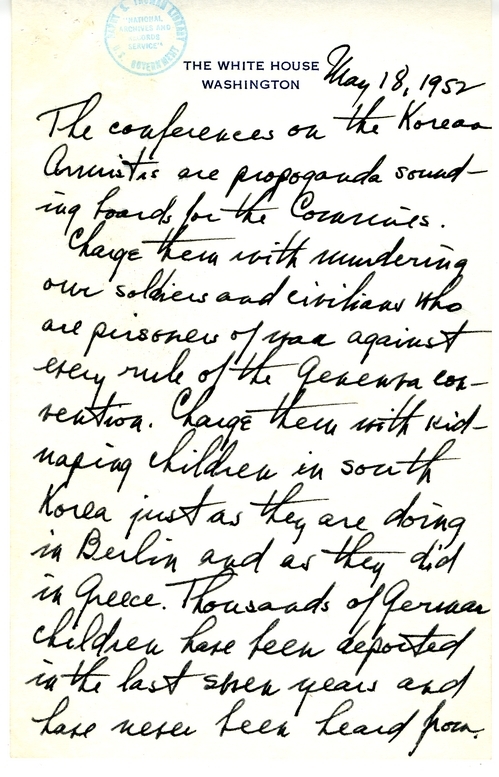 HARRY S. TRUMAN LIBRARY
"NATIONAL
ARCHIVES AND
RECORDS
SERVICE"
U.S. GOVERNMENT
THE WHITE HOUSE
WASHINGTON
May 18, 1952
The conferences on the Korean
Armistis are propoganda sound-
ing boards for the Commies.
Charge them with murdering
our soldiers and civilians who
are prisoners of war against
every rule of the Genenva con-
vention. Charge them with kid-
naping children in south
Korea just as they are doing
in Berlin and as they did
in Greece. Thousands of German
children have been deported
in the last seven years and
have never been heard from.